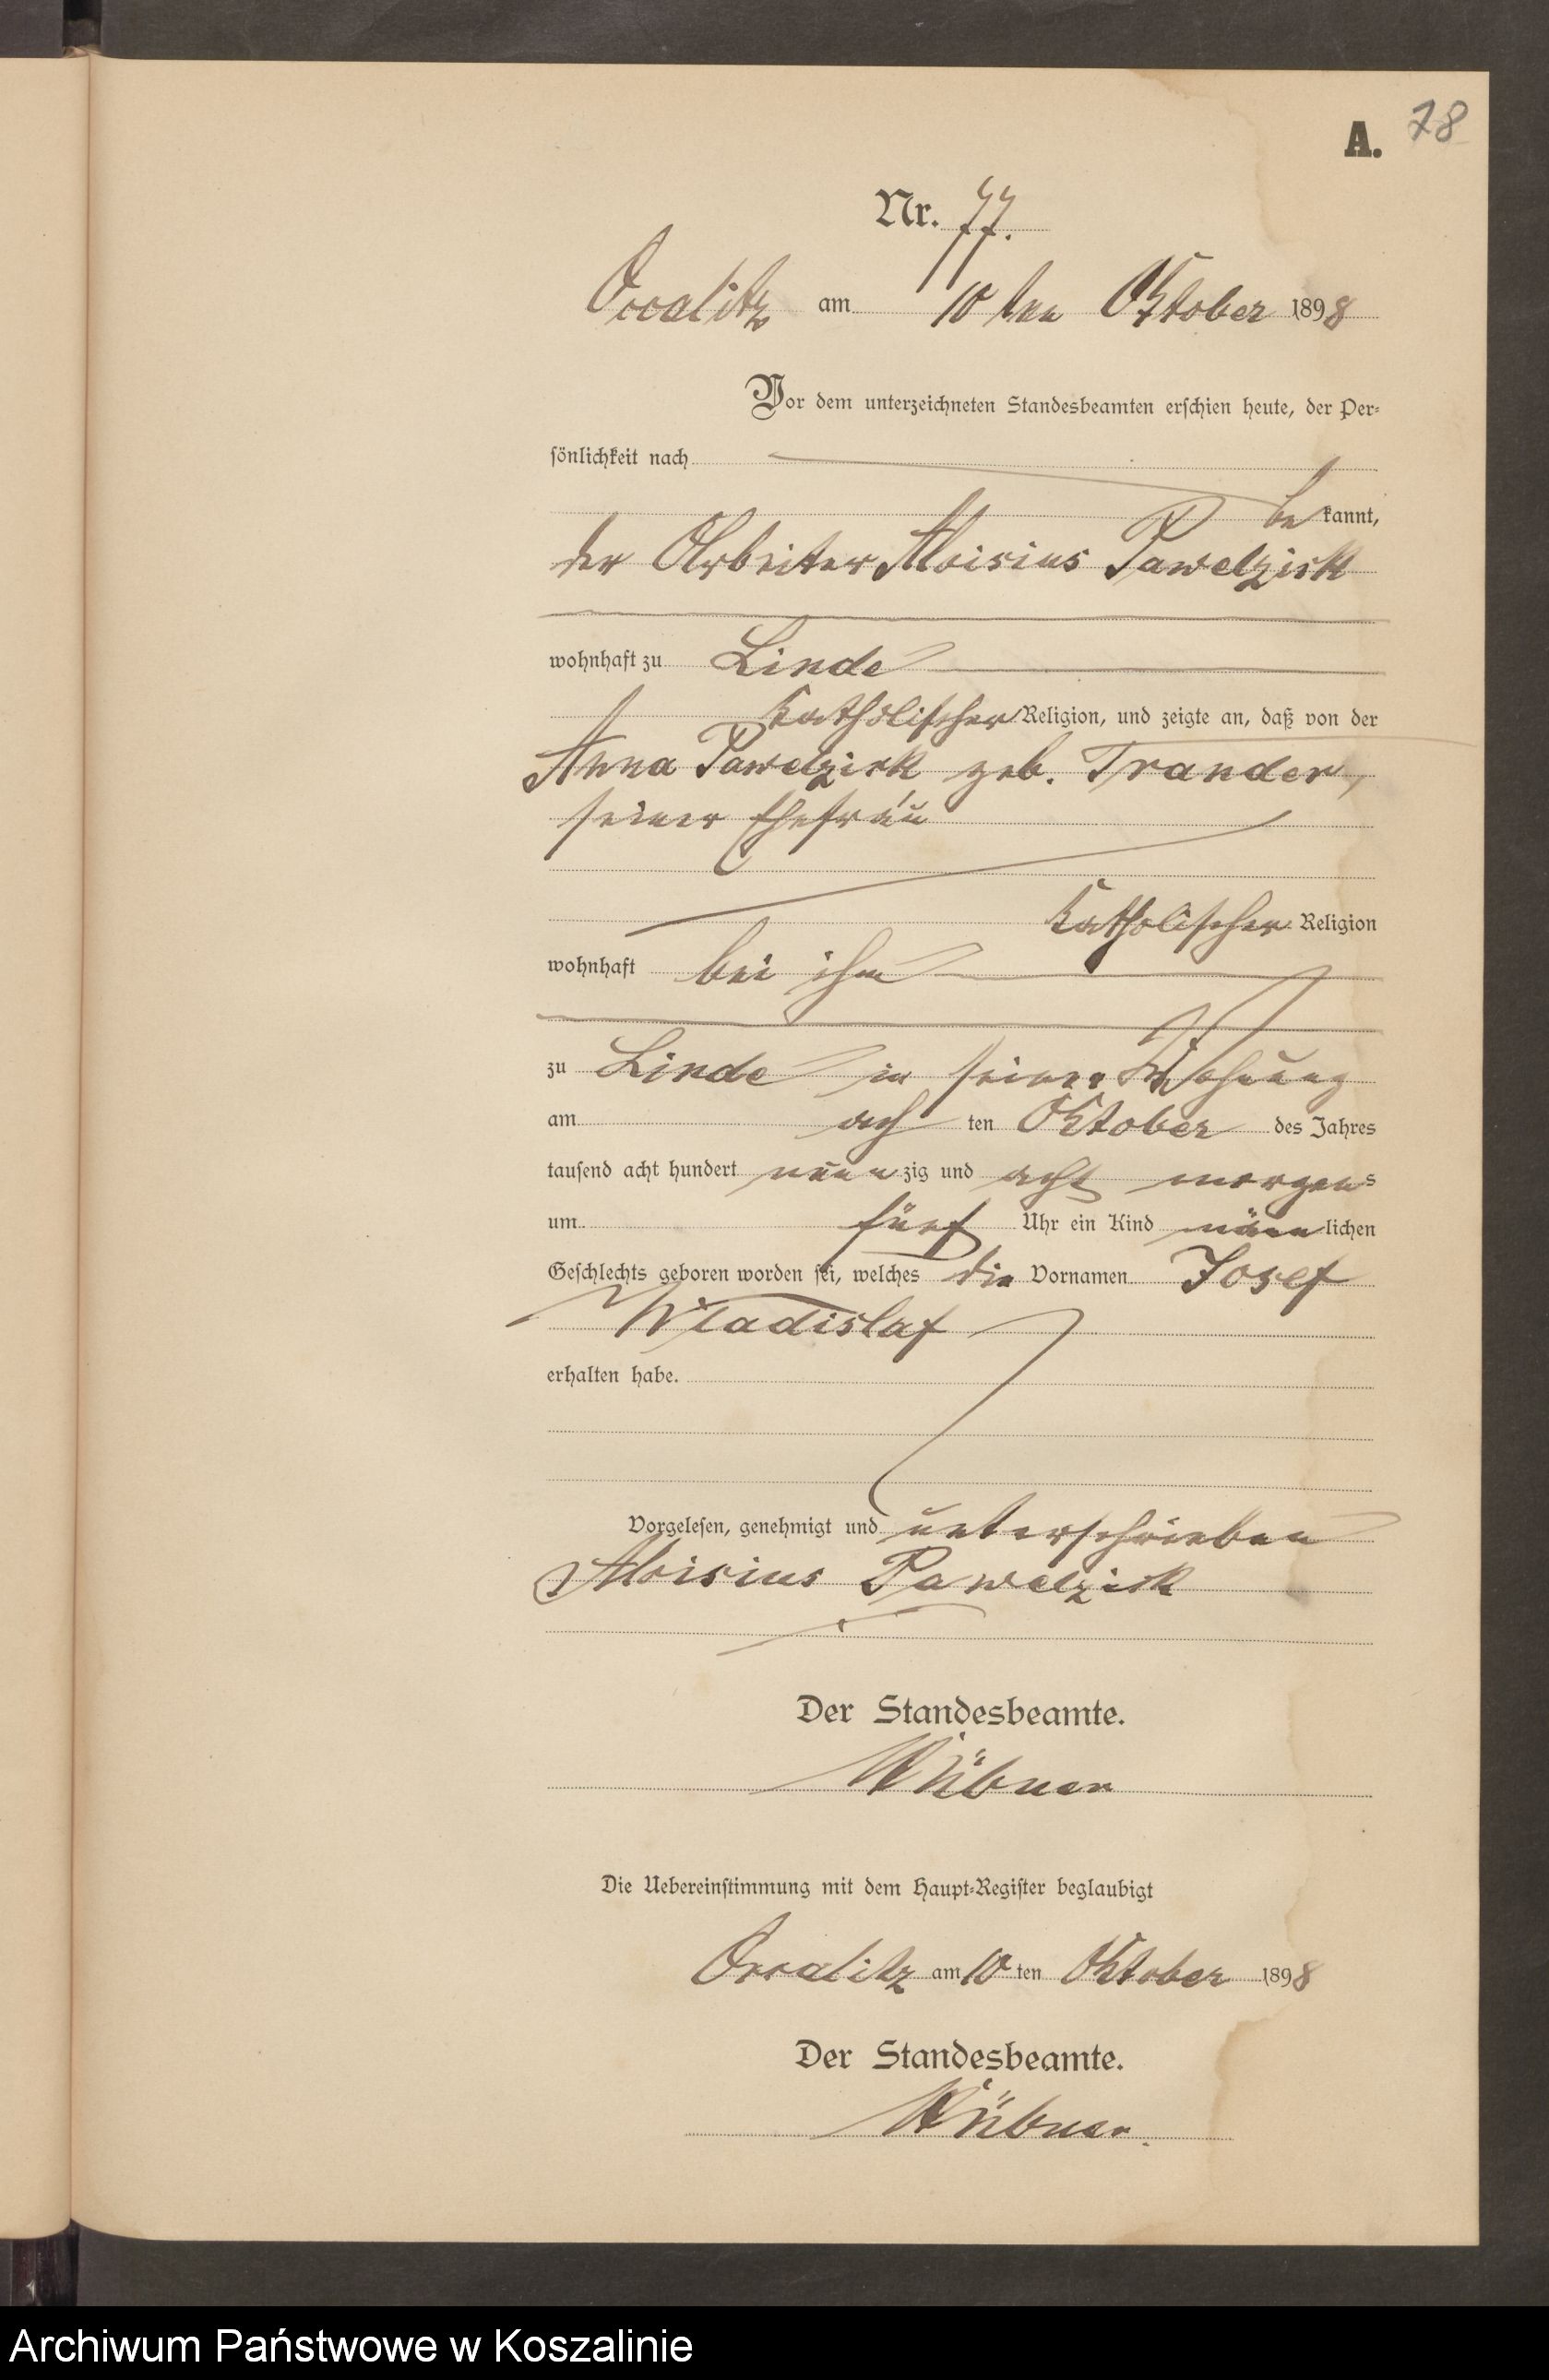 A. 78
Nr. 77.
Ossalitz am 10 ten Oktober 1898
Vor dem unterzeichneten Standesbeamten erschien heute, der Per-
sönlichkeit nach
be kannt,
der Arbeiter Aloisius Pawelzick
wohnhaft zu Linde
katholischer Religion, und zeigte an, daß von der
Anna Pawelzick geb. Trander,
seiner Ehefrau
katholischer Religion
wohnhaft bei ihm
zu Linde in seiner Wohnung
am ach ten Oktober des Jahres
tausend acht hundert neun zig und acht morgens
um fünf Uhr ein Kind männ lichen
Geschlechts geboren worden sei, welches die Vornamen Josef
Wladislaf
erhalten habe.
Vorgelesen, genehmigt und unterschrieben
Aloisius Pawelzick
Der Standesbeamte.
Hübner
Die Uebereinstimmung mit dem Haupt-Register beglaubigt
Ossalitz am 10 ten Oktober 1898
Der Standesbeamte.
Hübner.
Archiwum Państwowe w Koszalinie